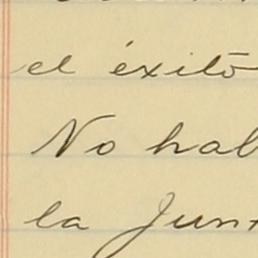 el éxito
No hab
la Jun